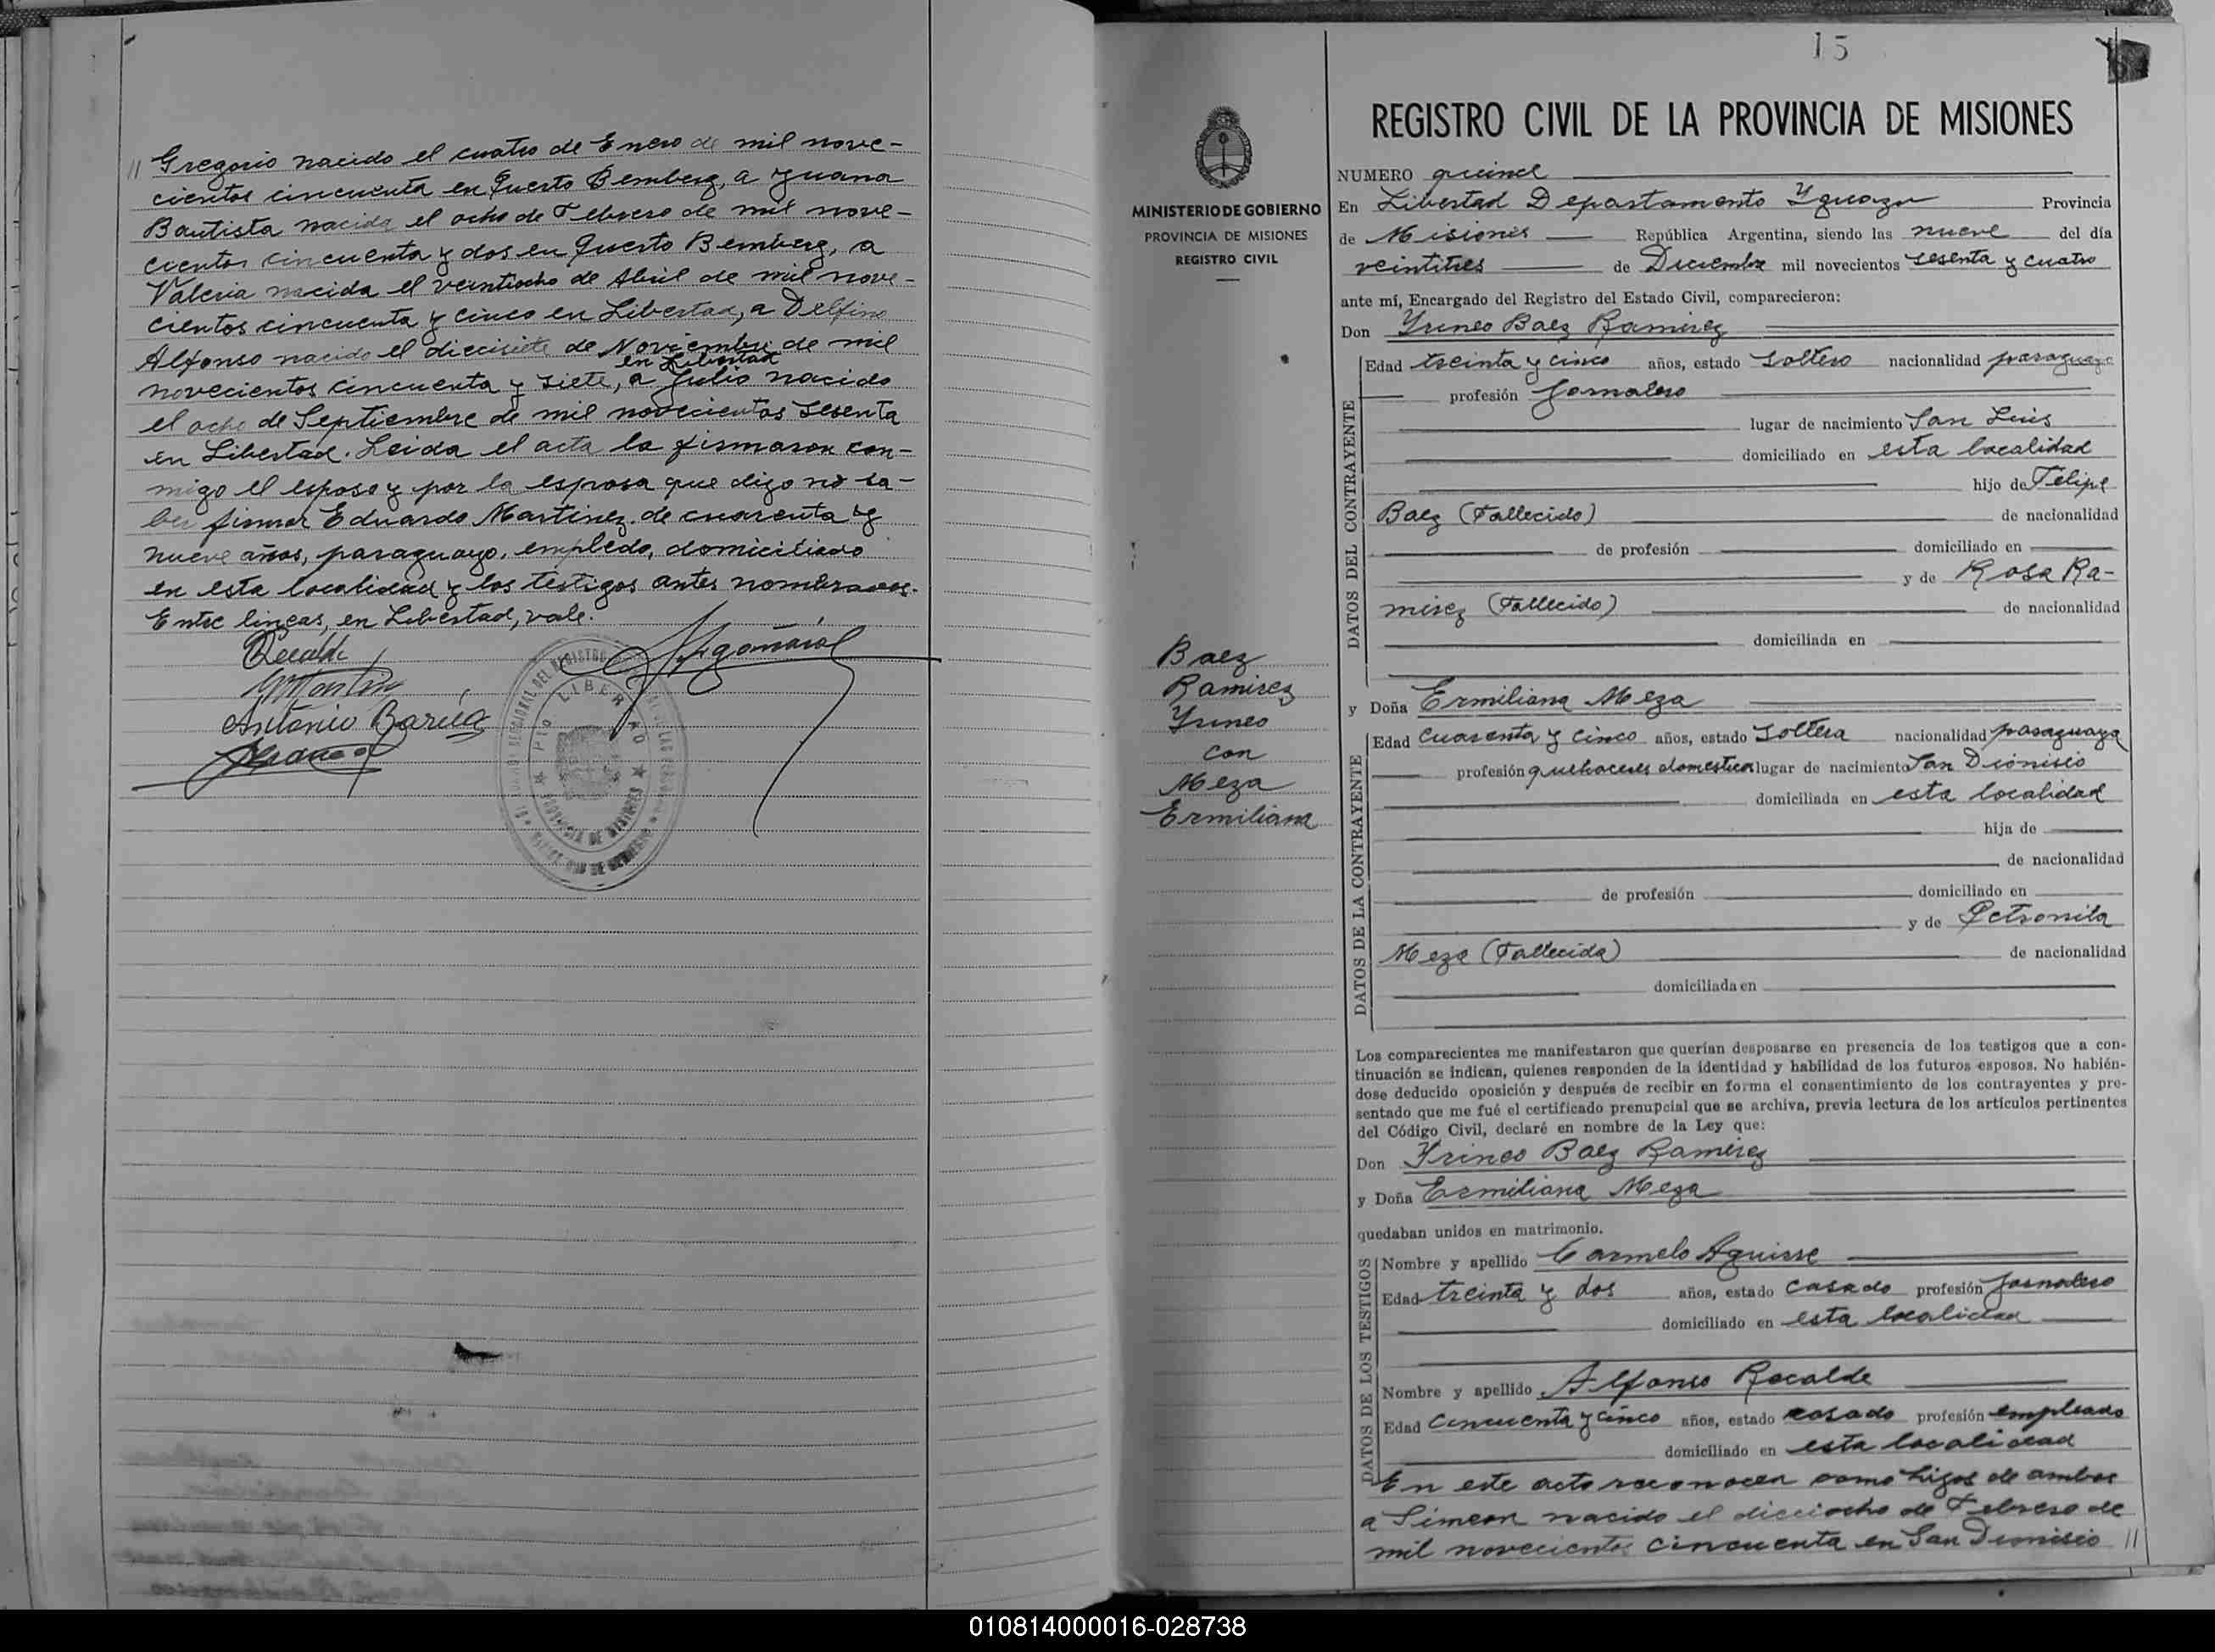 // Gregorio nacido el cuatro de Enero de mil nove-
cientos cincuenta en Puerto Bemberg, a Juana
Bautista nacida el ocho de Febrero de mil nove-
cientos cincuenta y dos en Puerto Bemberg, a
Valeria nacida el veintiocho de Abril de mil nove-
cientos cincuenta y cinco en Libertad, a Delfino
Alfonso nacido el diecisiete de Noviembre de mil
en Libertad
novecientos cincuenta y siete, a Julio nacido
el ocho de Septiembre de mil novecientos sesenta
en Libertad. Leida el acta la firmaron con-
migo el esposo y por la esposa que dijo no sa-
ber firmar Eduardo Martinez de cuarenta y
nueve años, paraguayo, empledo, domiciliado
en esta localidad y los testigos antes nombrados.
Entre lineas, en Libertad, vale.
Antonio Barúa
15
REGISTRO CIVIL DE LA PROVINCIA DE MISIONES
MINISTERIO DE GOBIERNO
PROVINCIA DE MISIONES
REGISTRO CIVIL
NUMERO quince
En Libertad Departamento Yguazu Provincia
de Misiones República Argentina, siendo las nueve del día
veintitres de Diciembre mil novecientos sesenta y cuatro
ante mí, Encargado del Registro del Estado Civil, comparecieron:
Don Yrineo Baez Ramirez
DATOS DEL CONTRAYENTE
Edad treinta y cinco años, estado soltero nacionalidad paraguaya
profesión Jornalero
lugar de nacimiento San Luis
domiciliado en esta localidad
hijo de Felipe
Baez (Fallecido) de nacionalidad
de profesión domiciliado en
y de Rosa Ra-
mirez (Fallecido) de nacionalidad
domiciliada en
Baez
Ramirez
Yrineo
con
Meza
Ermiliana
y Doña Ermiliana Meza
DATOS DE LA CONTRAYENTE
Edad cuarenta y cinco años, estado soltera nacionalidad paraguaya
profesión quehaceres domesticos lugar de nacimiento San Dionisio
domiciliada en esta localidad
hija de
de nacionalidad
de profesión domiciliado en
y de Petronila
Meza (Fallecida) de nacionalidad
domiciliada en
Los comparecientes me manifestaron que querían desposarse en presencia de los testigos que a con-
tinuación se indican, quienes responden de la identidad y habilidad de los futuros esposos. No habién-
dose deducido oposición y después de recibir en forma el consentimiento de los contrayentes y pre-
sentado que me fué el certificado prenupcial que se archiva, previa lectura de los artículos pertinentes
del Código Civil, declaré en nombre de la Ley que:
Don Yrineo Baez Ramirez
y Doña Ermiliana Meza
quedaban unidos en matrimonio.
DATOS DE LOS TESTIGOS
Nombre y apellido Carmelo Aguirre
Edad treinta y dos años, estado casado profesión Jornalero
domiciliado en esta localidad
Nombre y apellido Alfonso Recalde
Edad cincuenta y cinco años, estado casado profesión empleado
domiciliado en esta localidad
En este acto reconocen como hijos de ambos
a Simeon nacido el dieciocho de Febrero de
mil novecientos cincuenta en San Dionisio //
010814000016-028738